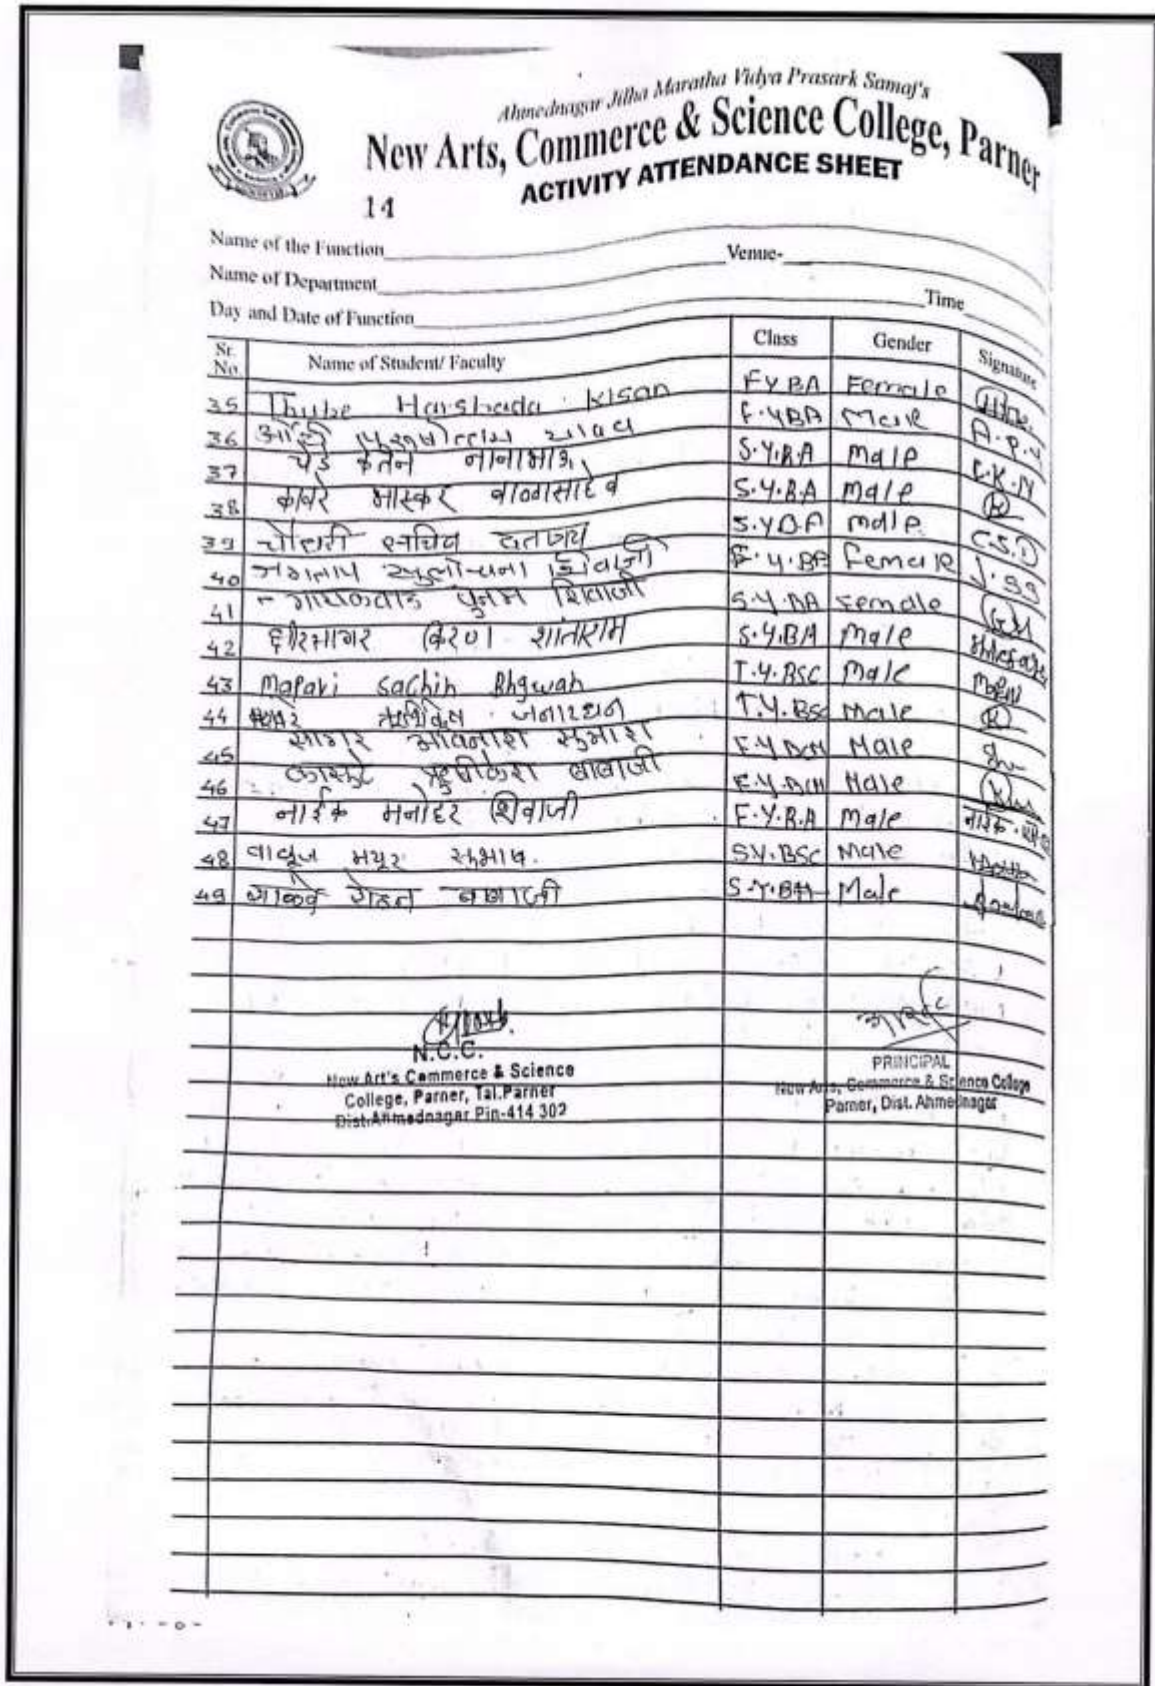 Ahmednagar Jilha Maratha Vidya Prasark Samaj's
New Arts, Commerce & Science College, Parner
ACTIVITY ATTENDANCE SHEET
14
Name of the Function Venue-
Name of Department
Day and Date of Function Time
Sr. No. Name of Student/ Faculty Class Gender Signature
35 Thube Harshada Kisan FYBA Female
36 F.YBA Male A.P.
37 चेडे केतन नानाभाऊ S.Y.B.A Male C.K.N
38 कावरे भास्कर बाळासाहेब S.Y.B.A Male
39 चौधरी सचिन दत्तात्रय S.Y.B.A Male C.S.D
40 जगताप सुलोचना शिवाजी F.Y.BA Female J.SS
41 गायकवाड पुनम शिवाजी S.Y.BA Female
42 क्षीरसागर किरण शांताराम S.Y.BA Male
43 Mapari Sachin Bhgwan T.Y.BSC Male
44 ऋषिकेष जनारधन T.Y.BSc Male
45 सागर अविनाश Male
46 ऋषीकेश बाबाजी Male
47 नाईक मनोहर शिवाजी F.Y.B.A Male नाईक
48 वाळूंज मयूर सुभाष. SY.BSC Male
49 Male
N.C.C.
New Art's Commerce & Science
College, Parner, Tal.Parner
Dist.Ahmednagar Pin-414 302
PRINCIPAL
New Arts, Commerce & Science College
Parner, Dist. Ahmednagar